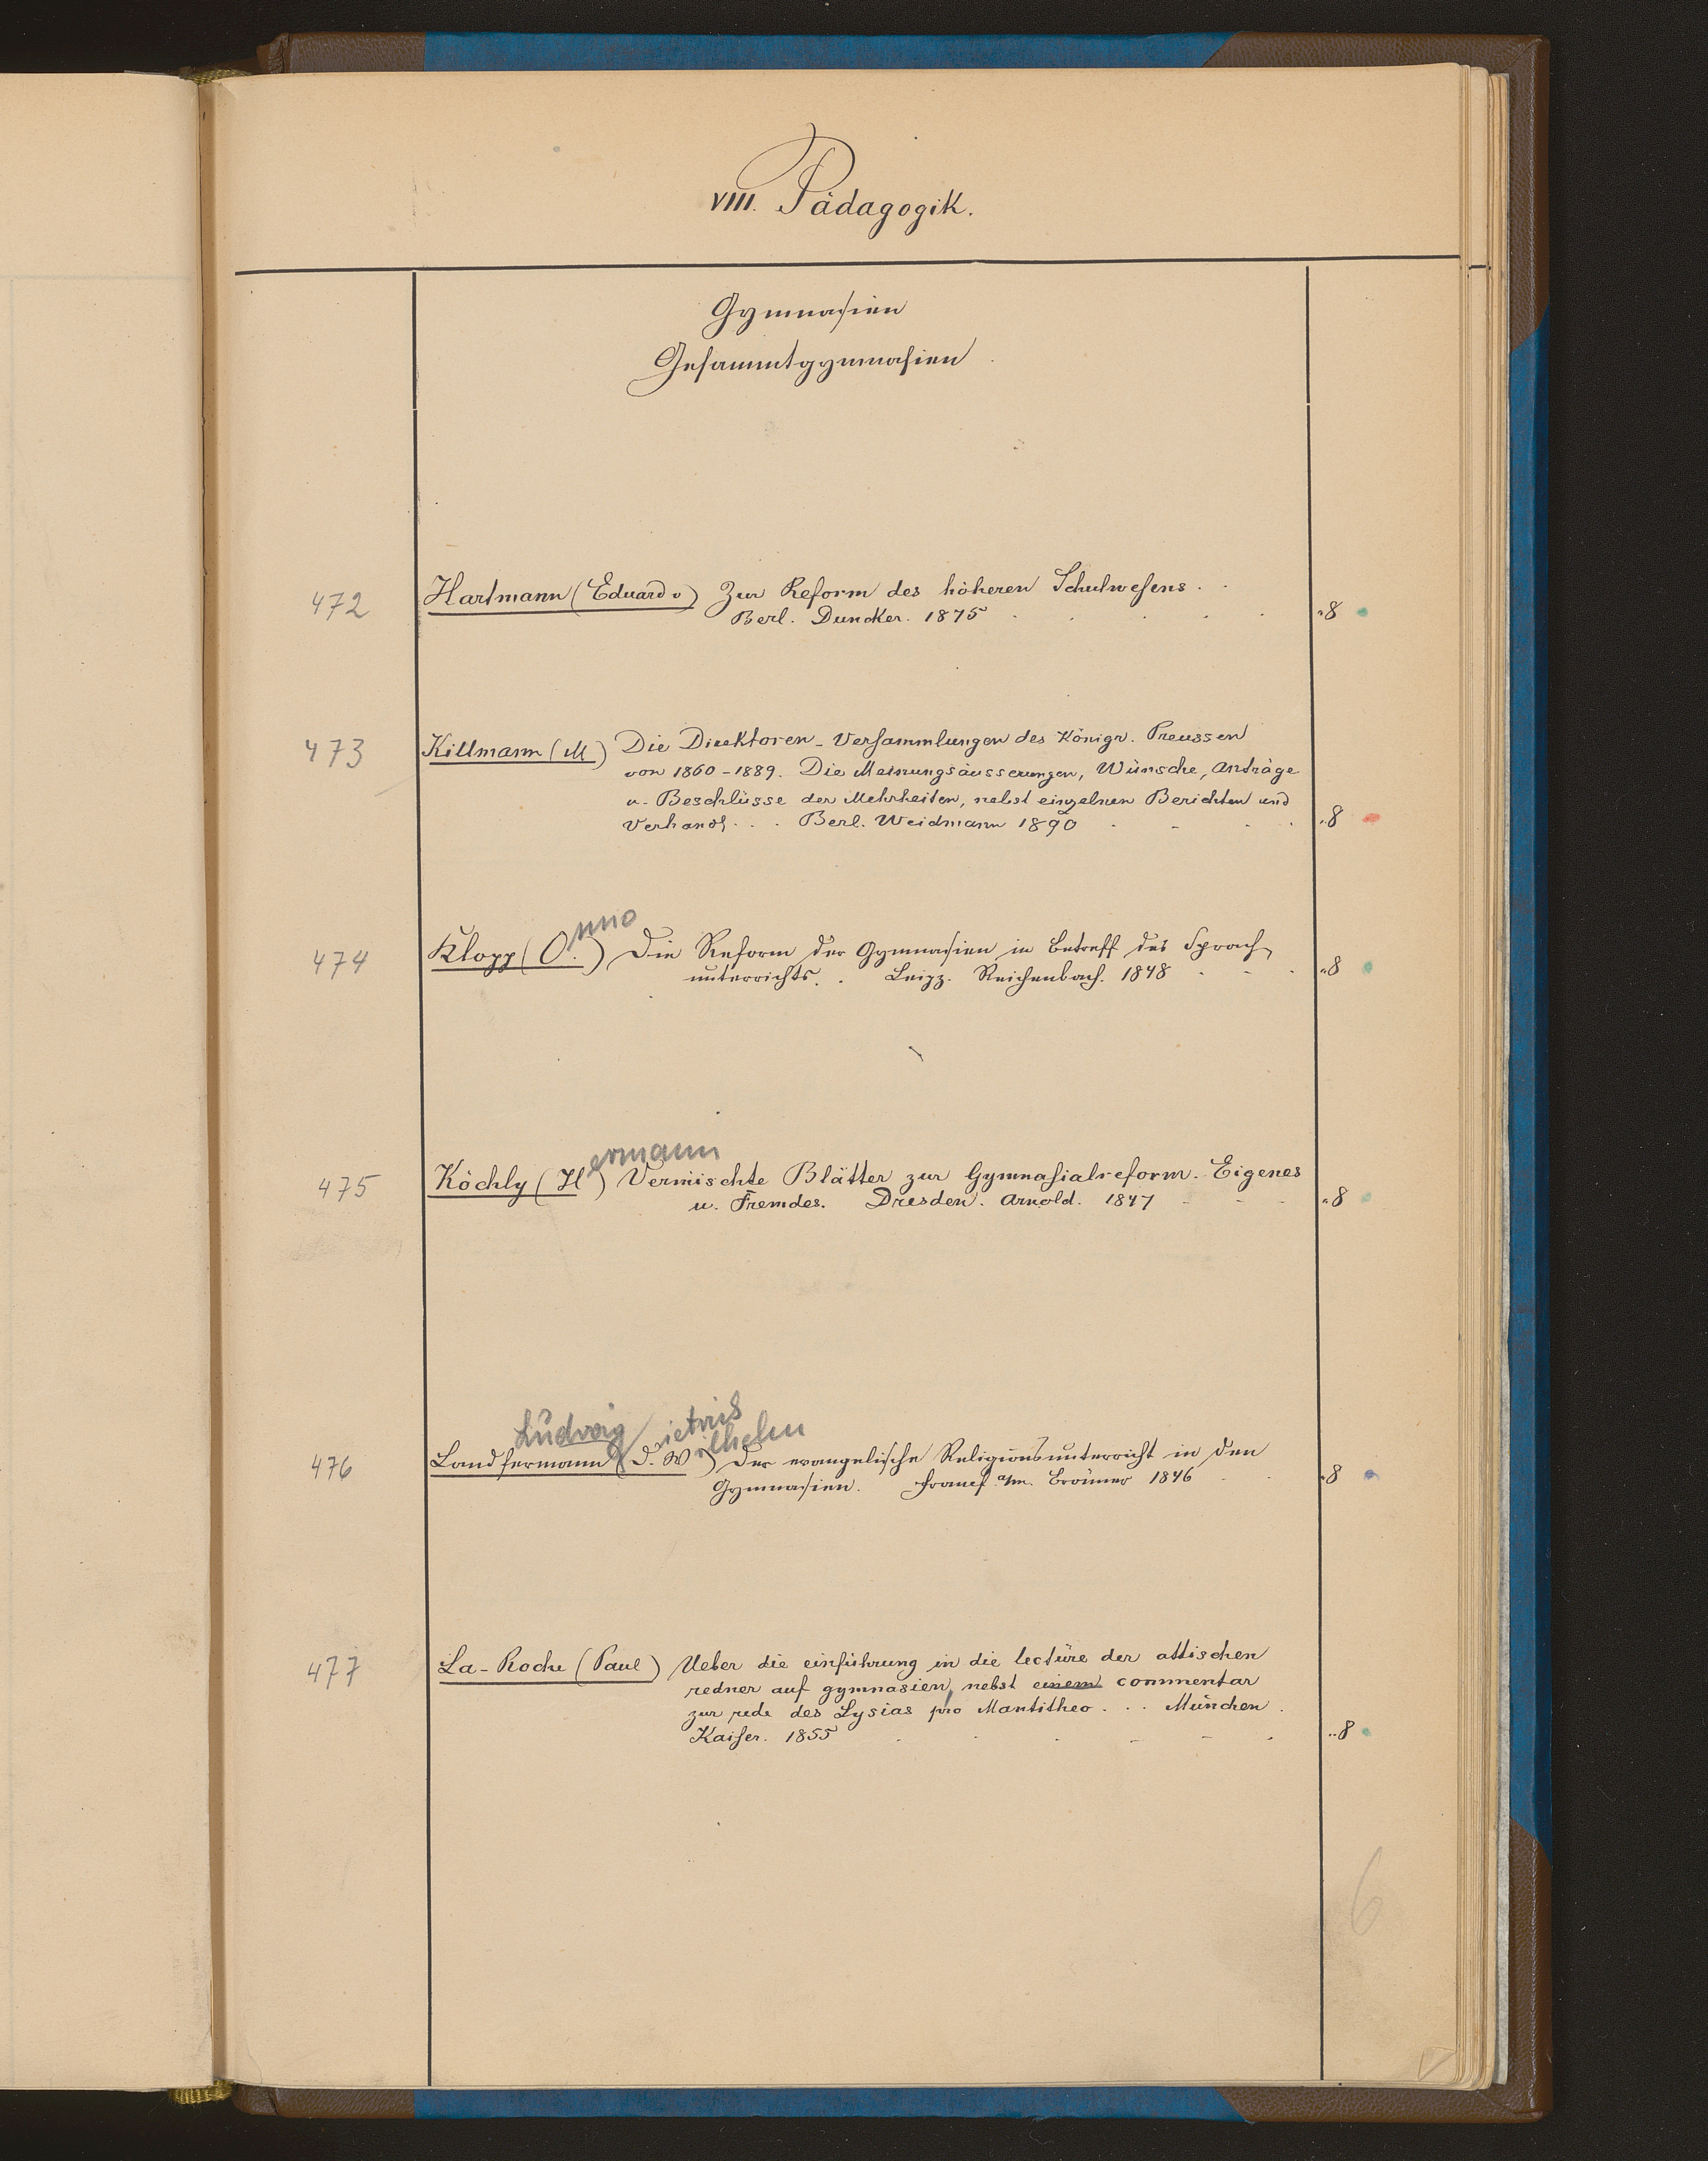 VIII. Pädagogik.
Gymnasien
Gesammtgymnasien
472 Hartmann (Eduard v) Zur Reform des höheren Schulwesens.
Berl. Duncker. 1875 8
473 Killmann (M) Die Direktoren-Versammlungen des Königr. Preussen
von 1860-1889. Die Meinungsäusserungen, Wünsche, Anträge
u. Beschlüsse der Mehrheiten, nebst einzelnen Berichten und
Verhandl... Berl. Weidmann 1890 8
nno
474 Klopp (O.) Die Reform der Gymnasien in Betreff des Sprach-
unterrichts. . Leipz. Reichenbach. 1848 8
ermann
475 Köchly (H) Vermischte Blätter zur Gymnasialreform. Eigenes
u. Fremdes. Dresden. Arnold. 1847 8
Ludwig ietrich
ilhelm
476 Landfermann (D. W) Der evangelische Religionsunterricht in den
Gymnasien. Francf a/m. Brönner 1846 8
477 La-Roche (Paul) Ueber die einführung in die lectüre der attischen
redner auf gymnasien, nebst einem commentar
zur rede des Lysias pro Mantitheo... München.
Kaiser. 1855 8
6